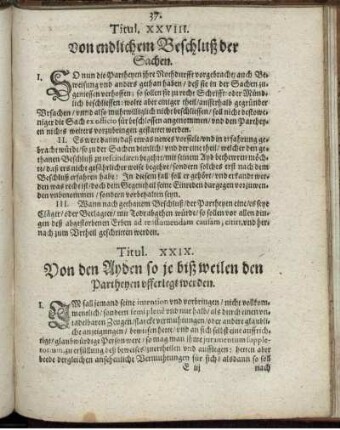 37.
Titul. XXVIII.
Von endlichem Beschluß der
Sachen.
I. SO nun die Partheyen jhre Notdurfft vorgebracht/ auch Be-
weisung vnd anders gethan haben/ deß sie in der Sachen zu
geniessen verhoffen/ so sollen sie zu recht Schrifft- oder Münd-
lich beschliessen/ wolte aber einiger theil/ ausserhalb gegründter
Vrsachen/ vnd also muhtwilliglich nicht beschliessen/ soll nicht destowe-
niger die Sach ex officio für beschlossen angenommen/ vnd den Parthey-
en nichts weiters vorzubringen gestattet werden.
II. Es were dann/ daß etwas newes vorfiele/ vnd in erfahrung ge-
bracht würde/ so zu der Sachen dienlich/ vnd der eine theil/ welcher den ge-
thanen Beschluß zu rescindiren begehrt/ mit seinem Ayd betheuren möch-
te/ daß er es nicht gefährlicher weise verhalten/ sondern solches erst nach dem
Beschluß erfahren habe/ In diesem fall er gehört/ vnd erkandt wer-
den was recht ist/ doch dem Gegentheil seine Einreden dargegen vorzuwen-
den vnbenommen/ sondern vorbehalten seyn.
III. Wann nach gethanem Beschluß der Partheyen eine/ es sey
Cläger/ oder Beklagter/ mit Todt abgehen würde/ so sollen vor allen din-
gen deß abgestorbenen Erben ad reassumendam causam, citirt, vnd her-
nach zum Vrtheil geschritten werden.
Titul. XXIX.
Von den Ayden so je bißweilen den
Partheyen vfferlegt werden.
I. IM fall jemand seine intention vnd vorbringen/ nicht vollkom-
menlich/ sondern semiplenè vnd nur halb/ als durch einen vn-
tadelbaren Zeugen/ starcke vermuhtungen/ oder andere glaubli-
che anzeigungen/ bewiesen hette/ vnd an sich selbst eine auffrich-
tige/ glaubwürdige Person were/ so mag man jhme juramentum supple-
torium, zu erfüllung deß beweises/ zuertheilen vnd aufflegen/ hetten aber
beede dergleichen ansehenliche Vermuhtungen für sich/ alsdann so soll
E iij nach